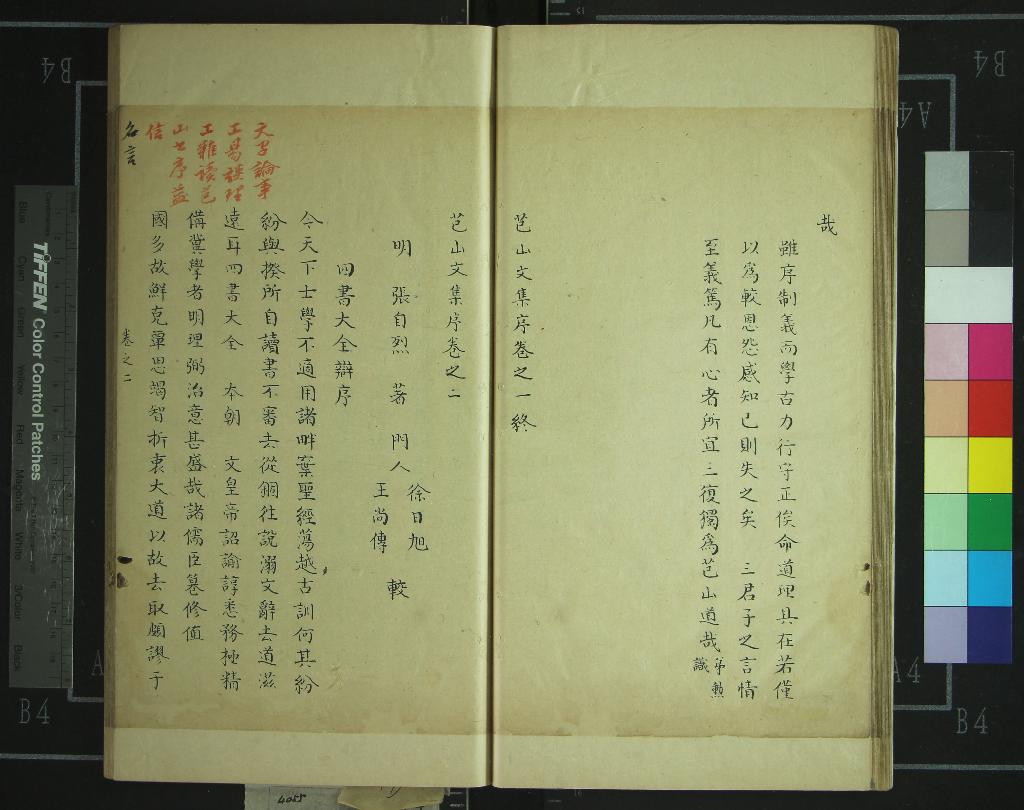 哉
雖序制義而學古力行守正俟命道理具在若僅
以爲較恩怨感知己則失之矣 三君子之言情
至義篤凡有心者所宜三復獨爲芑山道哉 弟勲
識
芑山文集序卷之一終
芑山文集序卷之二
明 張自烈 著 門人 徐日旭
王尚傳 較
四書大全辯序
今天下士學不適用諸畔棄聖經蕩越古訓何其紛
紛與揆所自讀書不審去從錮往說溺文辭去道滋
遠耳四書大全 本朝 文皇帝詔諭諄悉務極精
備冀學者明理弼治意甚盛哉諸儒臣纂修值
國多故鮮克覃思竭智折衷大道以故去取頗謬于
卷之二
天子論事
工易談理
工難讀芑
山七序益
信
名言
B4
B4
A4
A4
B4
B4
A
TIFFEN Color Control Patches
Blue
Cyan
Green
Yellow
Red
Magenta
White
3/Color
Black
4055